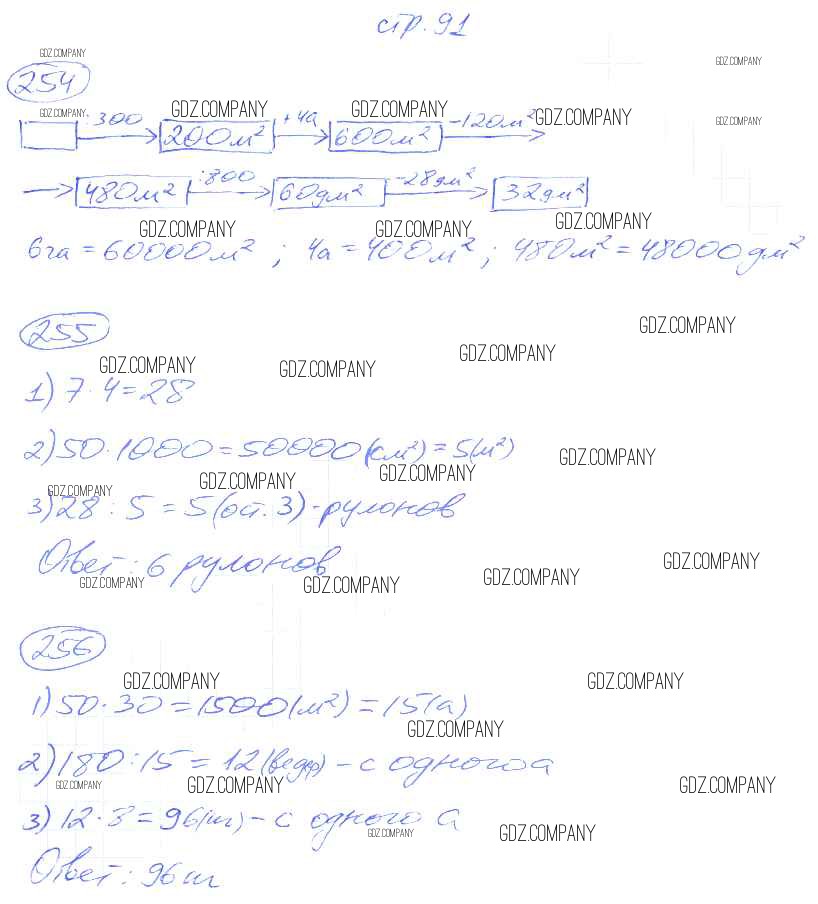 стр. 91
GDZ.COMPANY
GDZ.COMPANY
254
GDZ.COMPANY GDZ.COMPANY GDZ.COMPANY GDZ.COMPANY GDZ.COMPANY
:300 200м² +4а 600м² -120м²
480м² :800 60дм² -28дм² 32дм²
GDZ.COMPANY GDZ.COMPANY GDZ.COMPANY
6га = 60000м² ; 4а = 400м² ; 480м² = 48000дм²
255
GDZ.COMPANY
GDZ.COMPANY GDZ.COMPANY GDZ.COMPANY
1) 7·4=28
2) 50·1000=50000(см²)=5(м²)
GDZ.COMPANY
GDZ.COMPANY GDZ.COMPANY GDZ.COMPANY
3) 28 : 5 = 5(ост. 3) - рулонов
Ответ: 6 рулонов
GDZ.COMPANY GDZ.COMPANY GDZ.COMPANY GDZ.COMPANY
256
GDZ.COMPANY GDZ.COMPANY
1) 50·30=1500(м²)=15(а)
GDZ.COMPANY
2) 180:15=12(ведр) - с одного а
GDZ.COMPANY GDZ.COMPANY GDZ.COMPANY
3) 12·8=96(кг) - с одного а
GDZ.COMPANY GDZ.COMPANY
Ответ: 96кг